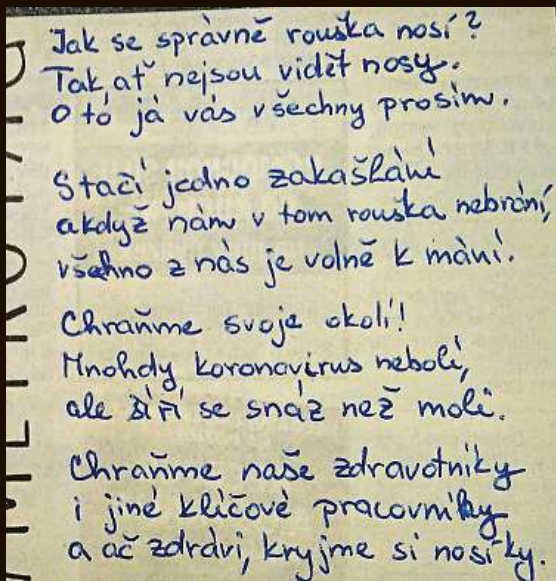 Jak se správně rouška nosí?
Tak, ať nejsou vidět nosy.
O tó já vás všechny prosím.
Stačí jedno zakašlání
a když nám v tom rouška nebrání,
všechno z nás je volně k mání.
Chraňme svoje okolí!
Mnohdy koronavirus nebolí,
ale šíří se snáz než moli.
Chraňme naše zdravotníky
i jiné klíčové pracovníky
a ač zdrávi, kryjme si nosíky.